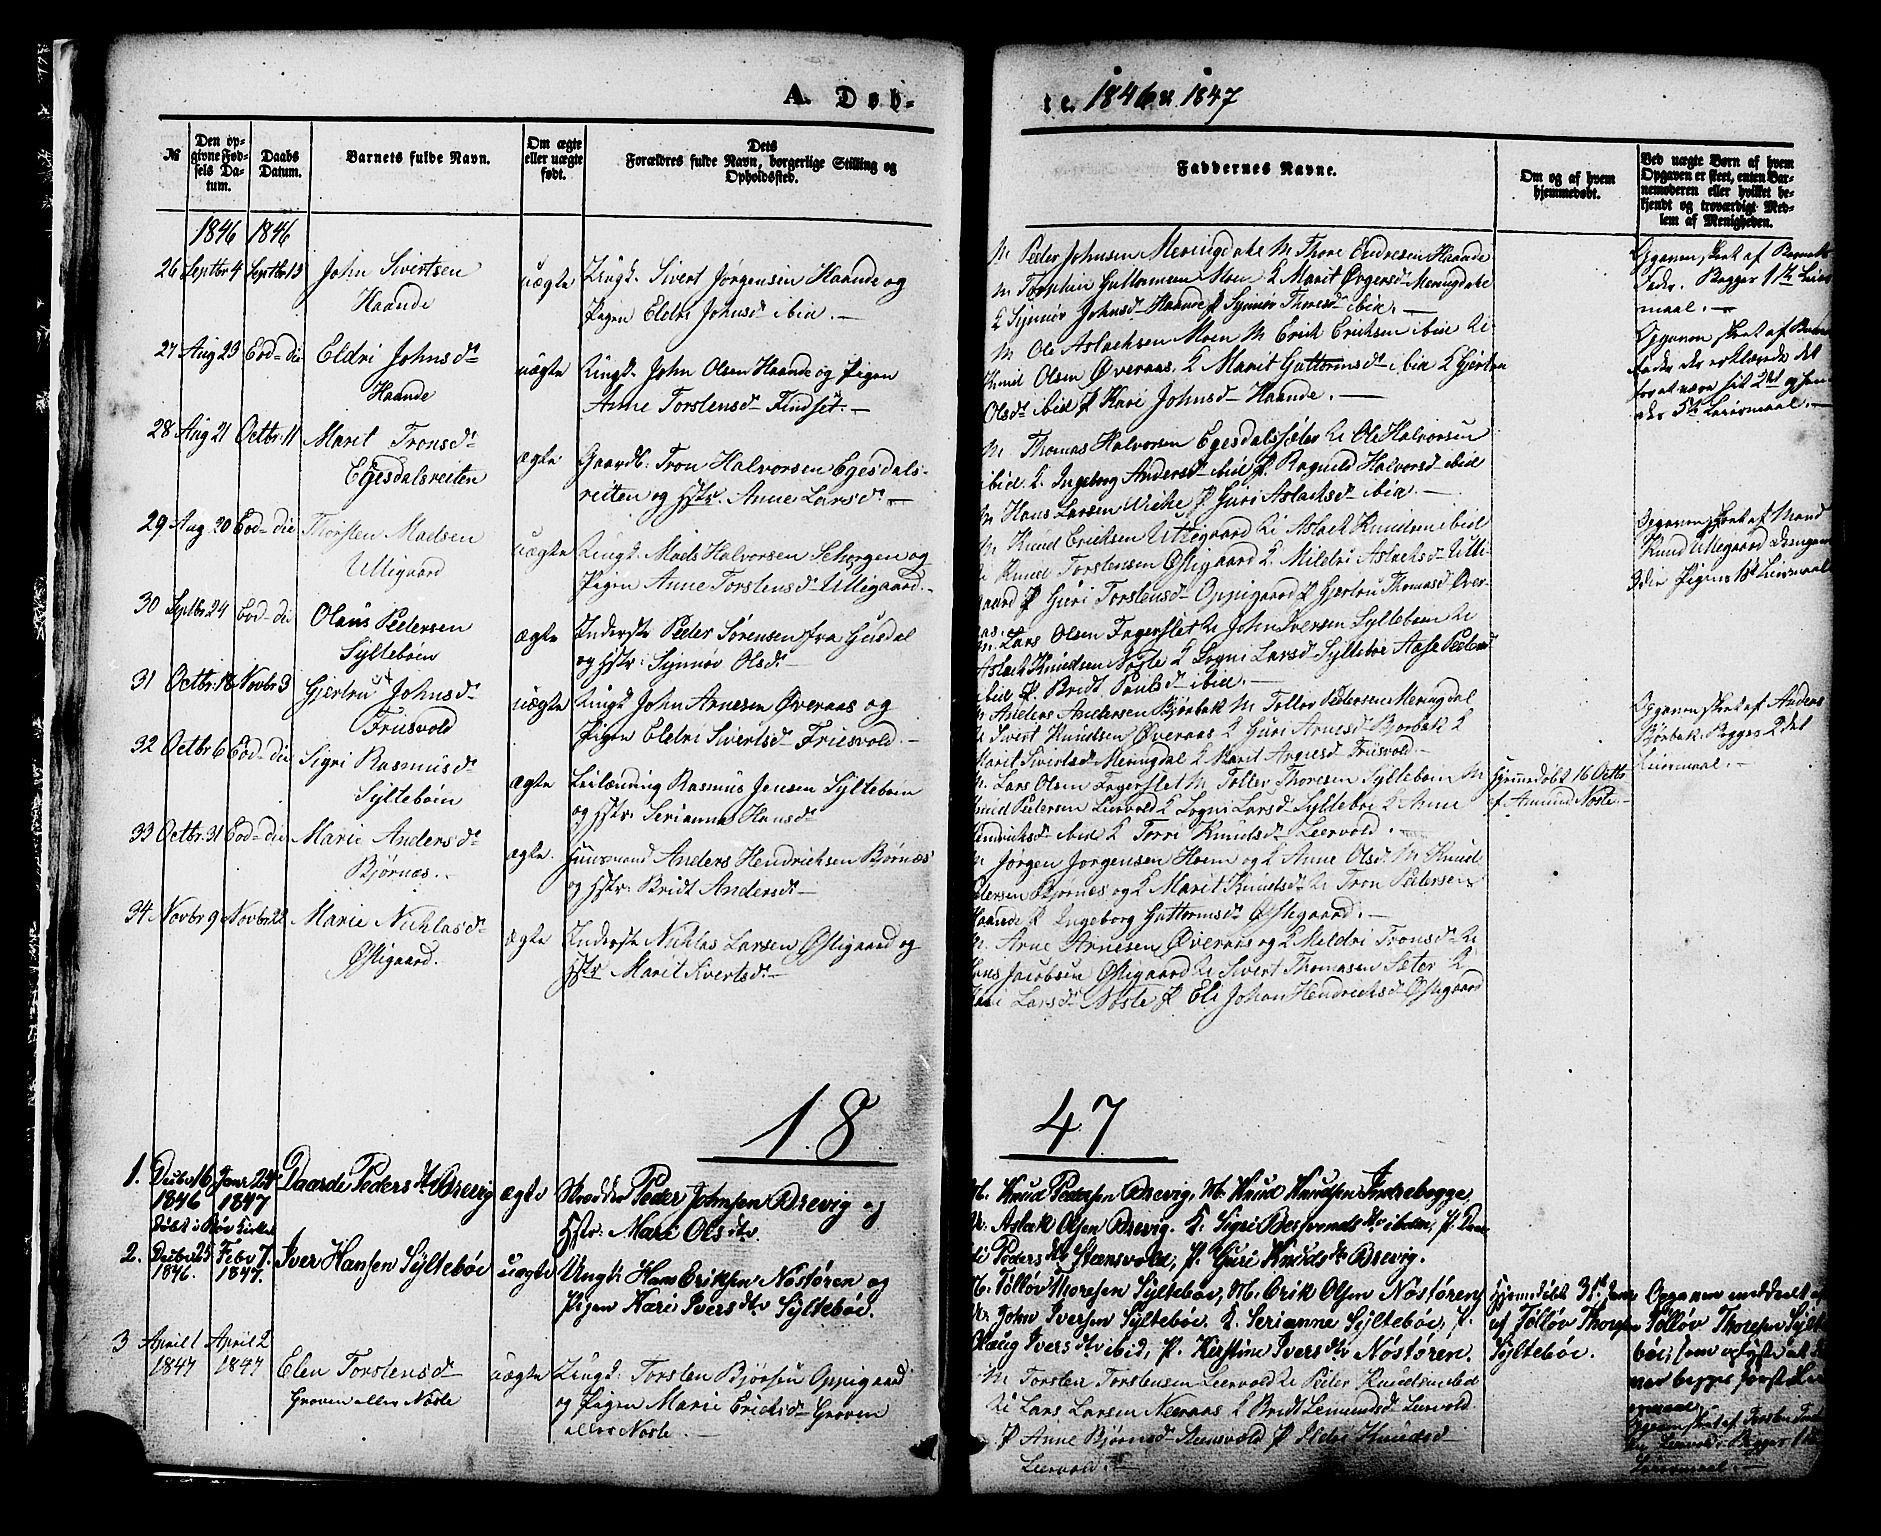 A. Døb-
te. 1846 & 1847
№
Den op-
givne Fød-
sels Da-
tum.
Daabs
Datum.
Barnets fulde Navn.
Om ægte
eller uægte
født.
Dets
Forældres fulde Navn, borgerlige Stilling og
Opholdssted.
Faddernes Navne.
Om og af hvem
hjemmedøbt.
Ved uægte Børn af hvem
Opgaven er skeet, enten Bar-
nemoderen eller hvilket be-
kjendt og troværdigt Med-
lem af Menigheden.
1846 1846
26 Septbr 4 Septbr 13 John Sivertsen
Haande
uægte Ungk. Sivert Jørgensen Haande og
Pigen Eldri Johnsd ibid. —
M Peder Johnsen Meringdale M Thore Endresen Haande
M Torstein Guttormsen Moen K Marit Ørgersd Meringdale
K Synnøv Johnsd Haande P Synnøv Thoresd ibid. —
Opgaven skeet af Barnets
Fader. Begges 1ste Leier-
maal. —
27 Aug 23 Eod-die Eldri Johnsd
Haande
uægte Ungk. John Olsen Haande og Pigen
Anne Torstensd Findset. —
M Ole Aslachsen Moen M Erich Erichsen ibid U
Knud Olsen Øveraas. K Marit Guttormsd ibid K Gjertru
Olsd ibid P Kari Johnsd Haande. —
Opgaven skeet af Barnets
Fader der erklærede det
for at være sit 2det og hen-
des 5te Leiermaal. —
28 Aug 21 Octbr 11 Marit Tronsd
Egesdalsreiten
ægte Gaardb. Tron Halvorsen Egesdals-
reiten og Hstr. Anne Larsd. —
M Thomas Halvorsen Egesdalssæter U Ole Halvorsen
ibid K Ingeborg Andersd ibid P Ragnild Halvorsd ibid
M Hans Larsen Virke P Guri Aslachsd ibid. —
29 Aug 30 Eod-die Thorsten Madsen
Utligaard
uægte Ungk. Mads Halvorsen Schorgen og
Pigen Anne Torstensd Utligaard. —
M Knud Erichsen Utligaard U Aslack Knudsen ibid
U Knud Torstensen Østigaard K Mildri Aslachsd Utli-
gaard P Guri Torstensd Oppigaard K Gjertru Thomasd Øver-
aas. —
Opgaven skeet af Mand
Knud Utligaard
Pigens 1ste Leiermaal
30 Septbr 24 Eod-die Olaus Pedersen
Syltebøen
ægte Inderste Peder Sørensen fra Gusdal
og Hstr. Synnøv Olsd —
M. Lars Olsen Fagerslet U John Iversen Syltebøen U
Aslach Knudsen Nøste K Sogni Larsd Syltebøe Aase Pedersd
ibid P Bridt Paulsd ibid. —
31 Octbr. 18 Novbr 3 Gjertru Johnsd
Frusvold
uægte Ungk John Arnesen Øveraas og
Pigen Eldri Sivertsd Friesvold —
M Anders Andersen Bjørbak M Tollev Pedersen Meringdal
U Sivert Knudsen Øveraas K Guri Arnesd Bjørbak K
Marit Sivertsd Meringdal K Marit Arnesd Friisvold —
Opgaven skeet af Anders
Bjørbak Begges 2det
Leiermaal. —
32 Octbr 6 Eod-die Sigri Rasmusd
Syltebøen
ægte Leilænding Rasmus Jensen Syltebøen
og Hstr. Serianna Hansd —
M. Lars Olsen Fagerslet M Tollev Thoresen Syltebøen M
Knud Pedersen Leervold K Sogni Larsd Syltebøe K Anne
Hendrichsd ibid K Torri Knudsd Leervold. —
Hjemmedøbt 16 Octbr
af Amund Nøste. —
33 Octbr. 31 Eod-die Marie Andersd
Bjørnæs. —
ægte. Huusmand Anders Hendrichsen Bjørnæs
og Hstr. Bridt Andersd —
M Jørgen Jorgensen Hoem og K Anne Olsd M Knud
Pedersen Bjørnæs og K Marit Knudsd U Tron Pedersen
Haande P Ingeborg Guttormsd Østigaard. —
34 Novbr 9 Novbr 22 Marie Nicklasd
Østigaard.
ægte Inderste Nicklas Larsen Østigaard og
Hstr Marit Sivertsd —
M. Arne Arnesen Øveraas og K Mildri Tronsd U
Hans Jacobsen Østigaard U Sivert Thomasen Sæter K
Kari Larsd Nøste P Eli Johan Hendrichsd Østigaard
18 47
1. Decbr 16 Janr 24 Baarde Pedersdtr Brevig
1846 1847
Døbt i Røv Kirke
ægte Skrædder Peder Johnsen Brevig og
Hstr. Mari Olsdtr.
M. Knud Pedersen Brevig, M. Knud Knudsen Indrebogge,
U. Aslak Olsen Brevig. K. Sigri Bersvendsdtr ibiden, P.
Pedersdtr Steensvold, P. Guri Knudsdtr Brevig.
2. Decbr 25 Febr 7. Iver Hansen Syltebøe
1846. 1847.
uægte Ungk. Hans Eriksen Nøstøren og
Pigen Kari Iversdtr Syltebøe.
M. Tolløv Thoresen Syltebøe, M. Erik Olsen Nøstøren
U. John Iversen Syltebøe, K. Serianne Syltebøe, P.
Haug Iversdtr ibid, P. Kirstine Iversdtr Nøstøren.
Hjemmedøbt 31t Janr
af Tolløv Thoresen
Syltebøe.
Opgaven meddeelt af
Tolløv Thoresen Sylte-
bøe, som oplyste at
begges første Lei-
ermaal.
3 April 1 April 2
1847 1847
Elen Torstensd
Groven eller Nøste
uægte Ungk. Torsten Bjørsen Oppigaard
og Pigen Marie Erichsd Groven
eller Nøste. —
M Torsten Torstensen Leervold U Peder Knudsen ibid
U Lars Larsen Neeraas K Bridt Lemundsd Leervold
P Anne Bjørnsd Steensvold P Eldri Knudsd
Leervold. —
Opgaven skeet af Torsten
Leervold. Begges 1ste
Leiermaal. —